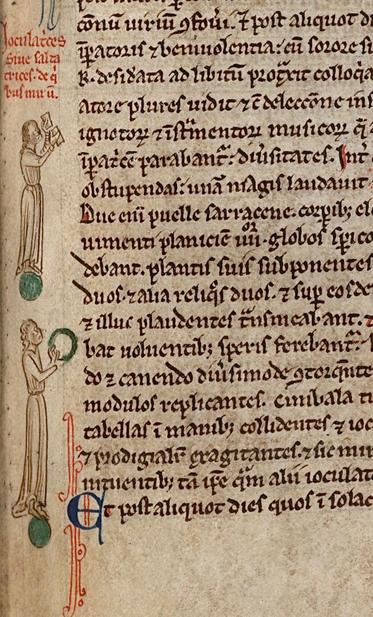 Joculatrices
siue salta
trices. de q
bus mirū.
cōmū uiriū 9fouī. Et post aliquot di
īpatoris & beniuolentia: cū sorore s
R. desidata ad libitū protxit colloq̄a
atore plures uidit & ī delecc̄one ins
ignotoꝝ & īstꝛmentoꝝ musicoꝝ q̄
parabant̃: diu̾sitates. Int̾
obstupendas: unā magis laudauit
Due eni puelle sarracene corpib; el
uimenti planicie iiiior globos speric
debant. plantis suis subponentes
duos & alia reliq̄s duos. & sup̱ eosde
& illuc plaudentes tñsmeabant.
bat uoluentib; speris ferebant̃
do & canendo diu̾simode 9torq̄nte
modulos replicantes. Cimbala t
tabellas ī manib; collidentes & ioc
& prodigialit̾ exagitantes. & sic mir
intuentib; tā ip̄e q̄m alii ioculat
Et post aliquot dies quos ī solac